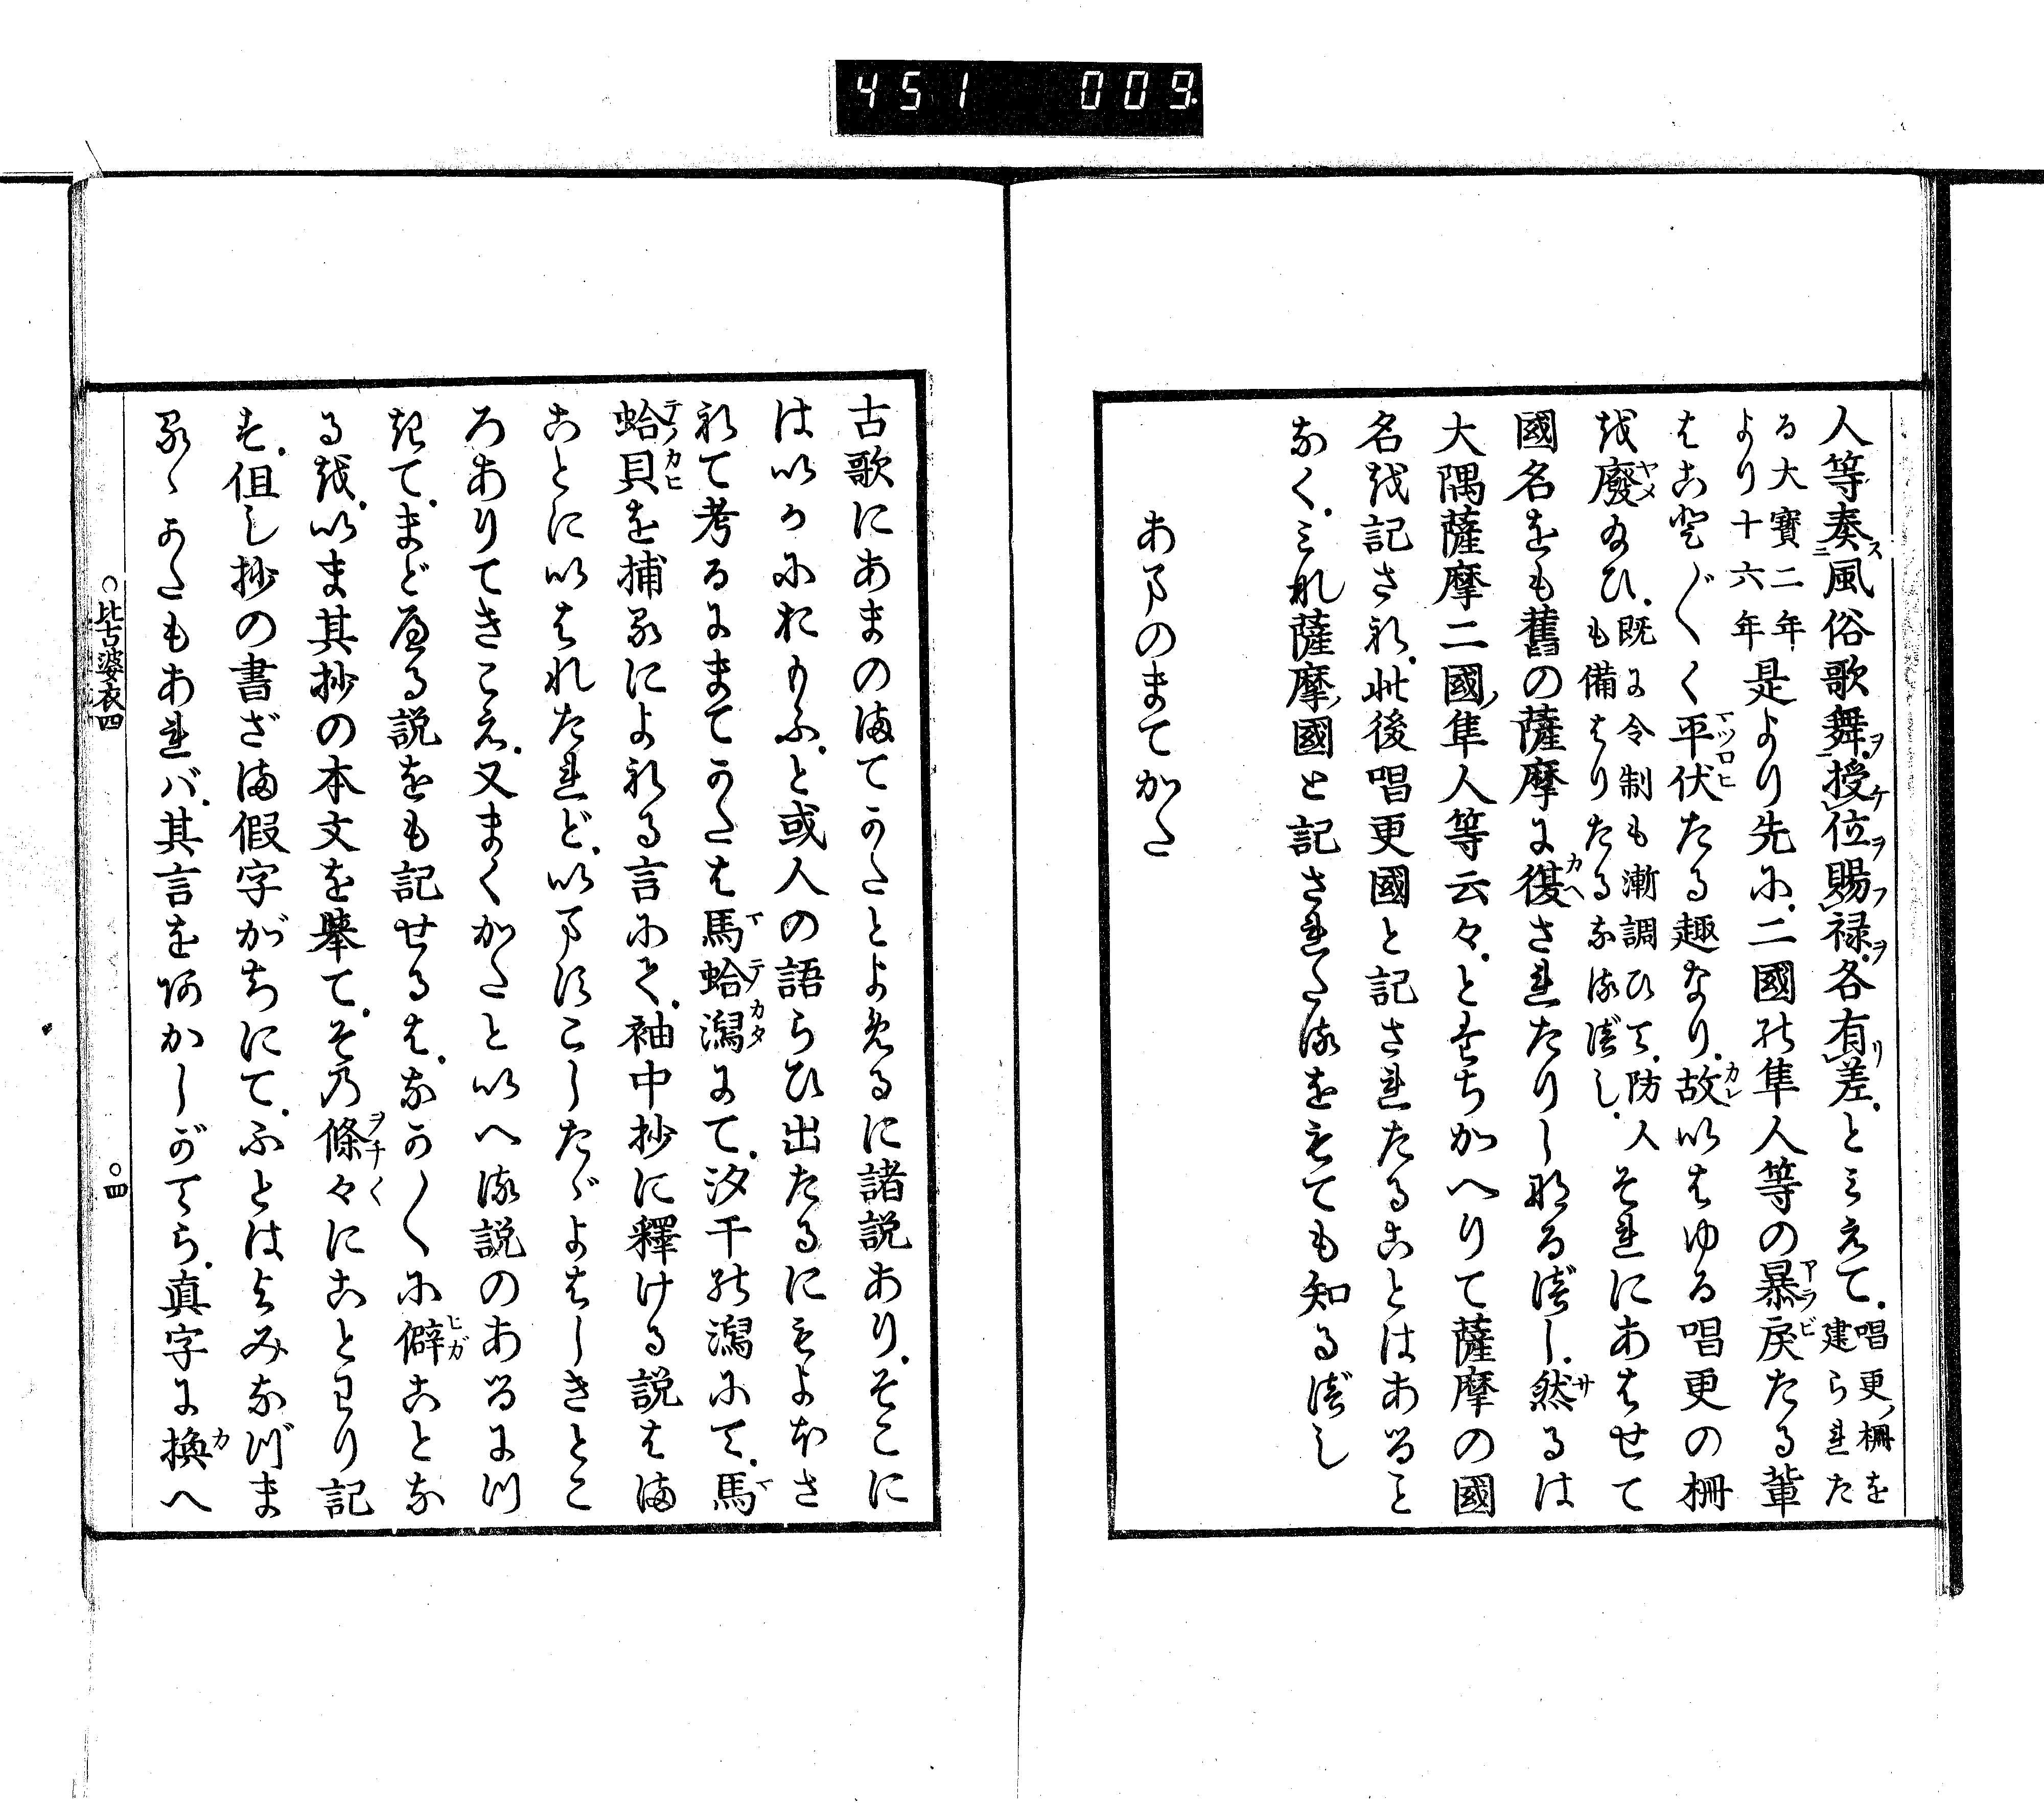 451 009
人等奏風俗歌舞授位賜禄各有差とみえて唱更ノ柵を建られた
る大寶二年より十六年是より先に二國の隼人等の暴戻たる輩
はことごとく平伏たる趣なり故いはゆる唱更の柵
を廢給ひ既に令制も漸調ひて防人も備はりたるなるべしそれにあはせて
國名をも舊の薩摩に復されたりしなるべし然るは
大隅薩摩二國ノ隼人等云々とうちかへりて薩摩の國
名を記され此後唱更國と記されたることはあること
なくみな薩摩ノ國と記されたるをもても知るべし
あまのまてがた
古歌にあまのまてかたとよめるに諸説ありそこに
はいかにおもふと或人の語らひ出たるにもよほさ
れて考るにまてかたは馬蛤潟にて汐干の潟にて馬
蛤貝を捕るによれる言にて袖中抄に釋ける説はま
ことにいはれたれどいますこしたどよはしきとこ
ろありてきこえ又まくかたといへる説のあるにつ
きてまどへる説をも記せるはなかなかに僻ことな
るをいま其抄の本文を擧てその條々にことわり記
す但し抄の書ざま假字がちにてふとはよみなづま
るゝかたもあれバ其言をおかしがてら真字に換へ
○比古婆衣四
○四